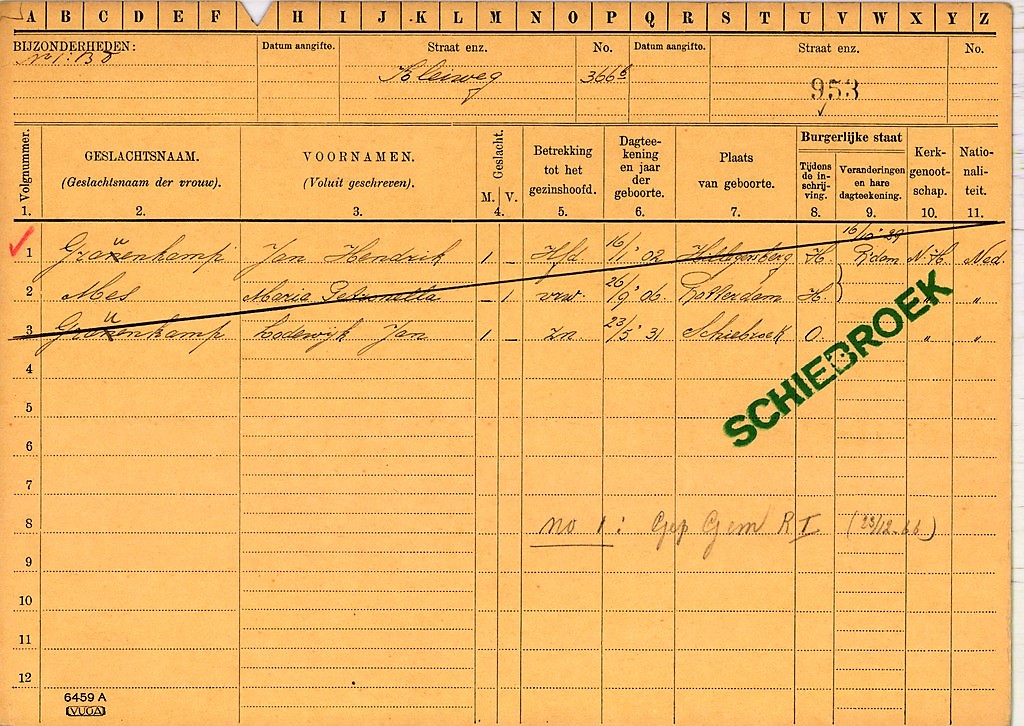 A B C D E F H I J K L M N O P Q R S T U V W X Y Z
BIJZONDERHEDEN: Datum aangifte. Straat enz. No. Datum aangifte. Straat enz. No.
No 1: B
Kleiweg 366b 953
Volgnummer. GESLACHTSNAAM. (Geslachtsnaam der vrouw). VOORNAMEN. (Voluit geschreven). Geslacht. M. V. Betrekking tot het gezinshoofd. Dagteekening en jaar der geboorte. Plaats van geboorte. Burgerlijke staat Tijdens de inschrijving. Veranderingen en hare dagteekening. Kerkgenootschap. Nationaliteit.
1. 2. 3. 4. 5. 6. 7. 8. 9. 10. 11.
1 Grauenkamp Jan Hendrik 1 – Hfd. 16/1 '02 Hilligersberg H. 16/10 '29 R'dam N.H. Ned.
2 Mes Maria Petronella – 1 vrw. 26/9 '06 Rotterdam H. " "
3 Grauenkamp Lodewijk Jan 1 – zn. 23/5 '31 Schiebroek O. " "
SCHIEBROEK
4
5
6
7
8 no 1: Gep Gem R I (23/12-66)
9
10
11
12
6459 A
VUGA